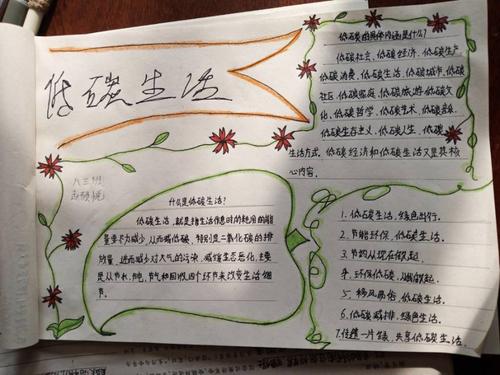 低碳生活
八三班
什么是低碳生活?
低碳生活,就是指生活作息时的耗用的能
量要尽力减少,从而减低碳,特别是二氧化碳的排
放量,进而减少对大气的污染,减缓生态恶化,主要
是从节水,节电,节气和回收四个环节来改变生活细
节。
低碳的具体内涵是什么?
低碳社会、低碳经济、低碳生产、
低碳消费、低碳生活、低碳城市、低碳
社区、低碳家庭、低碳旅游、低碳文
化、低碳哲学、低碳艺术、低碳音乐、
低碳生存主义、低碳人生、低碳
生活方式。低碳经济和低碳生活又是其核
心内容。
1. 低碳生活,绿色出行。
2. 节能环保,低碳生活。
3. 节约从现在做起。
4. 环保低碳,从我做起。
5. 移风易俗,低碳生活。
6. 低碳减排,绿色生活。
7. 佳蕴一片绿,共享低碳生活。